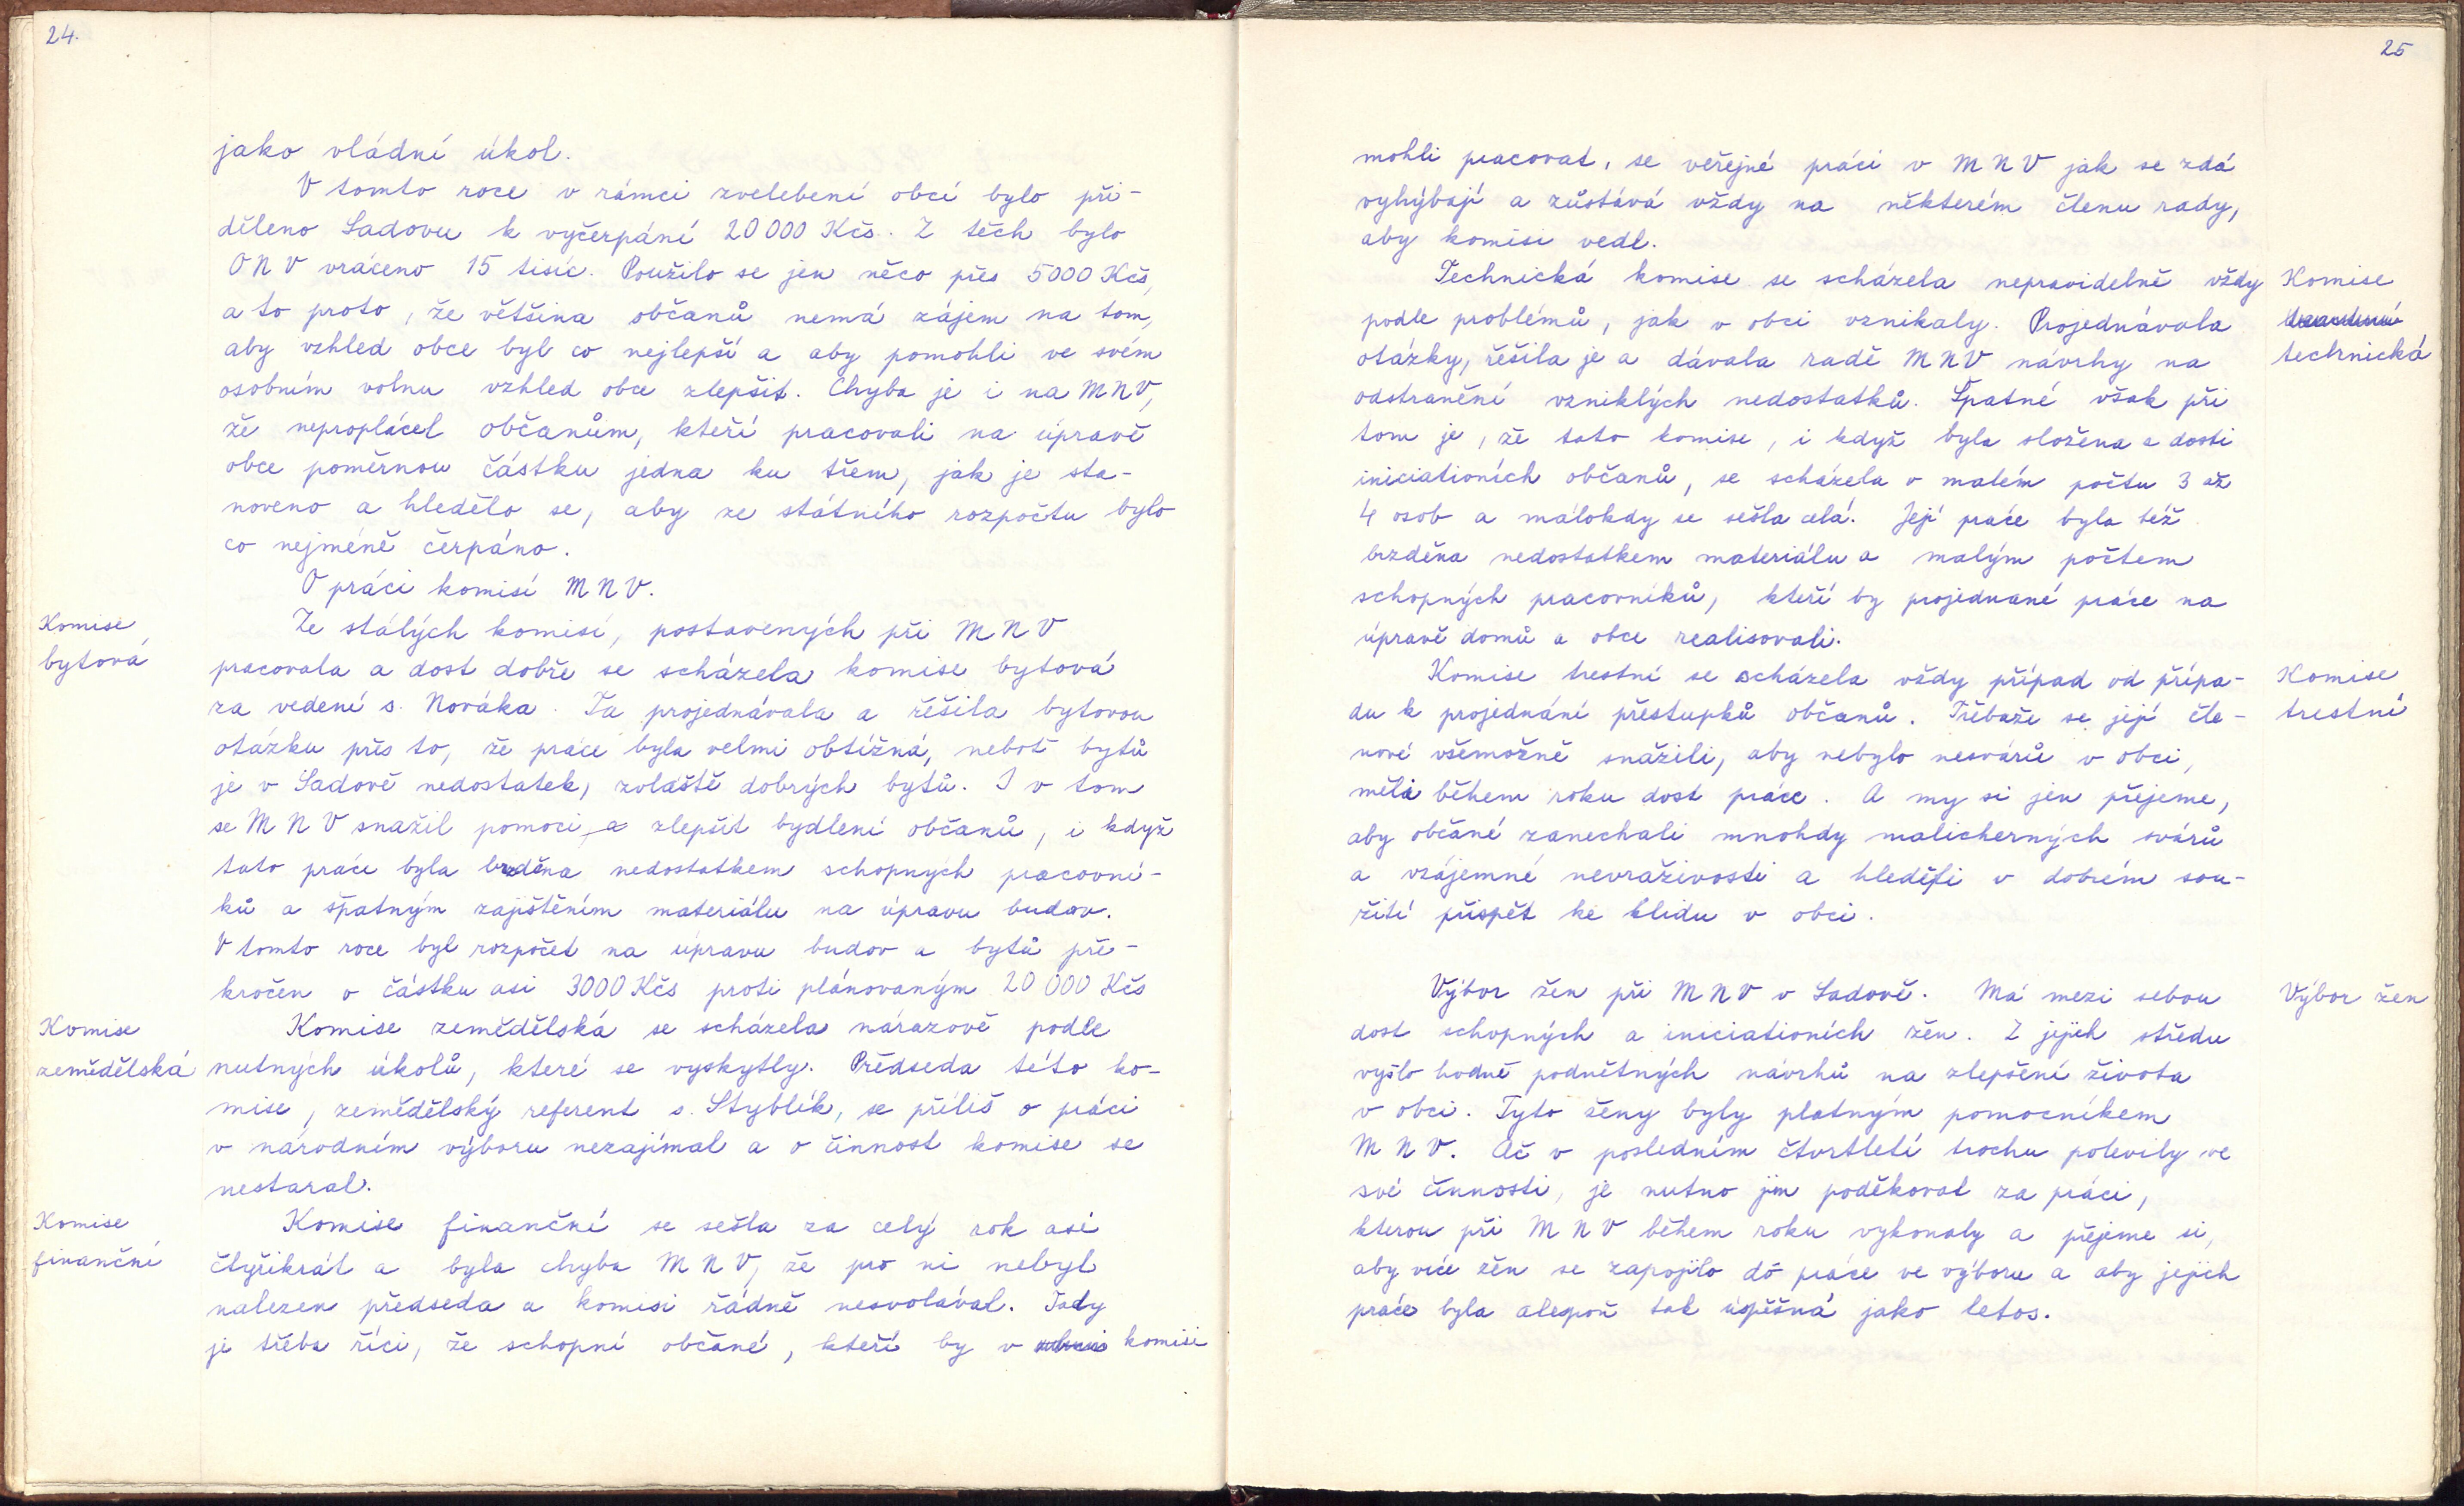 24.
jako vládní úkol.
V tomto roce v rámci zvelebení obcí bylo při-
děleno Sadovu k vyčerpání 20 000 Kčs. Z těch bylo
ONV vráceno 15 tisíc. Použilo se jen něco přes 5000 Kčs,
a to proto, že většina občanů nemá zájem na tom,
aby vzhled obce byl co nejlepší a aby pomohli ve svém
osobním volnu vzhled obce zlepšit. Chyba je i na MNV,
že neproplácel občanům, kteří pracovali na úpravě
obce poměrnou částku jedna ku třem, jak je sta-
noveno a hledělo se, aby ze státního rozpočtu bylo
co nejméně čerpáno.
O práci komisí MNV.
Komise
bytová
Ze stálých komisí, postavených při MNV
pracovala a dost dobře se scházela komise bytová
za vedení s. Nováka. Ta projednávala a řešila bytovou
otázku přes to, že práce byla velmi obtížná, neboť bytů
je v Sadově nedostatek, zvláště dobrých bytů. I v tom
se MNV snažil pomoci a zlepšit bydlení občanů, i když
tato práce byla brzděna nedostatkem schopných pracovní-
ků a špatným zajištěním materiálu na úpravu budov.
V tomto roce byl rozpočet na úpravu budov a bytů pře-
kročen o částku asi 3000 Kčs proti plánovaným 20 000 Kčs
Komise
zemědělská
Komise zemědělská se scházela nárazově podle
nutných úkolů, které se vyskytly. Předseda této ko-
mise, zemědělský referent s. Styblík, se příliš o práci
v národním výboru nezajímal a o činnost komise se
nestaral.
Komise
finanční
Komise finanční se sešla za celý rok asi
čtyřikrát a byla chyba MNV, že pro ni nebyl
nalezen předseda a komisi řádně nesvolával. Tady
je třeba říci, že schopní občané, kteří by v komisi
25
mohli pracovat, se veřejné práci v MNV jak se zdá
vyhýbají a zůstává vždy na některém členu rady,
aby komisi vedl.
Komise
technická
Technická komise se scházela nepravidelně vždy
podle problémů, jak v obci vznikaly. Projednávala
otázky, řešila je a dávala radě MNV návrhy na
odstranění vzniklých nedostatků. Špatné však při
tom je, že tato komise, i když byla složena z dosti
iniciativních občanů, se scházela v malém počtu 3 až
4 osob a málokdy se sešla celá. Její práce byla též
brzděna nedostatkem materiálu a malým počtem
schopných pracovníků, kteří by projednané práce na
úpravě domů a obce realisovali.
Komise
trestní
Komise trestní se scházela vždy případ od přípa-
du k projednání přestupků občanů. Třebaže se její čle-
nové všemožně snažili, aby nebylo nesvárů v obci,
měla během roku dost práce. A my si jen přejeme,
aby občané zanechali mnohdy malicherných svárů
a vzájemné nevraživosti a hleděli v dobrém sou-
žití přispět ke klidu v obci.
Výbor žen
Výbor žen při MNV v Sadově. Má mezi sebou
dost schopných a iniciativních žen. Z jejich středu
vyšlo hodně podnětných návrhů na zlepšení života
v obci. Tyto ženy byly platným pomocníkem
MNV. Ač v posledním čtvrtletí trochu polevily ve
své činnosti, je nutno jim poděkovat za práci,
kterou při MNV během roku vykonaly a přejeme si,
aby více žen se zapojilo do práce ve výboru a aby jejich
práce byla alespoň tak úspěšná jako letos.